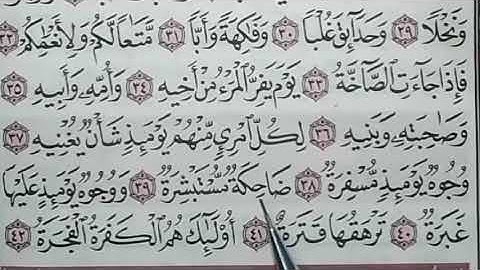 وَنَخْلًا ٢٩ وَحَدَآئِقَ غُلْبًا ٣٠ وَفَٰكِهَةً وَأَبًّا ٣١ مَّتَٰعًا لَّكُمْ وَلِأَنْعَٰمِكُمْ ٣٢
فَإِذَا جَآءَتِ ٱلصَّآخَّةُ ٣٣ يَوْمَ يَفِرُّ ٱلْمَرْءُ مِنْ أَخِيهِ ٣٤ وَأُمِّهِۦ وَأَبِيهِ ٣٥
وَصَٰحِبَتِهِۦ وَبَنِيهِ ٣٦ لِكُلِّ ٱمْرِئٍ مِّنْهُمْ يَوْمَئِذٍ شَأْنٌ يُغْنِيهِ ٣٧
وُجُوهٌ يَوْمَئِذٍ مُّسْفِرَةٌ ٣٨ ضَاحِكَةٌ مُّسْتَبْشِرَةٌ ٣٩ وَوُجُوهٌ يَوْمَئِذٍ عَلَيْهَا
غَبَرَةٌ ٤٠ تَرْهَقُهَا قَتَرَةٌ ٤١ أُو۟لَٰٓئِكَ هُمُ ٱلْكَفَرَةُ ٱلْفَجَرَةُ ٤٢